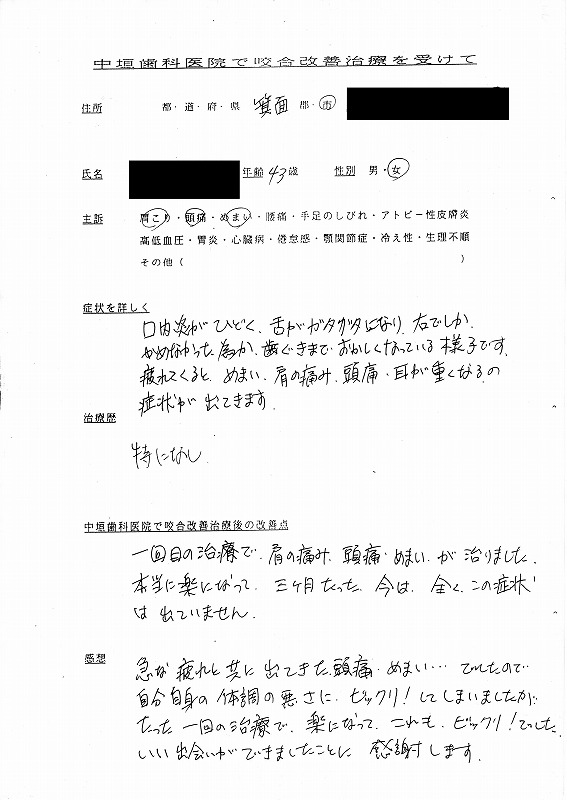 中垣歯科医院で咬合改善治療を受けて
住所 都・道・府・県 箕面 郡・市
氏名 年齢 43 歳 性別 男・女
主訴 肩こり・頭痛・めまい・腰痛・手足のしびれ・アトピー性皮膚炎
高低血圧・胃炎・心臓病・倦怠感・顎関節症・冷え性・生理不順
その他（ ）
症状を詳しく
口内炎がひどく、舌がガタガタになり、右でしか
かめなかった為か、歯ぐきまでおかしくなっている様子です。
疲れてくると、めまい、肩の痛み、頭痛・耳が重くなるの
症状が出てきます。
治療歴
特になし
中垣歯科医院で咬合改善治療後の改善点
一回目の治療で、肩の痛み、頭痛・めまい が治りました。
本当に楽になって、三ヶ月たった今は、全くこの症状
は出ていません。
感想
急な疲れと共に出てきた頭痛・めまい…でしたので
自分自身の体調の悪さに、ビックリ！してしまいましたが
たった一回の治療で、楽になって、これも、ビックリ！でした。
いい出会いができましたことに 感謝します。